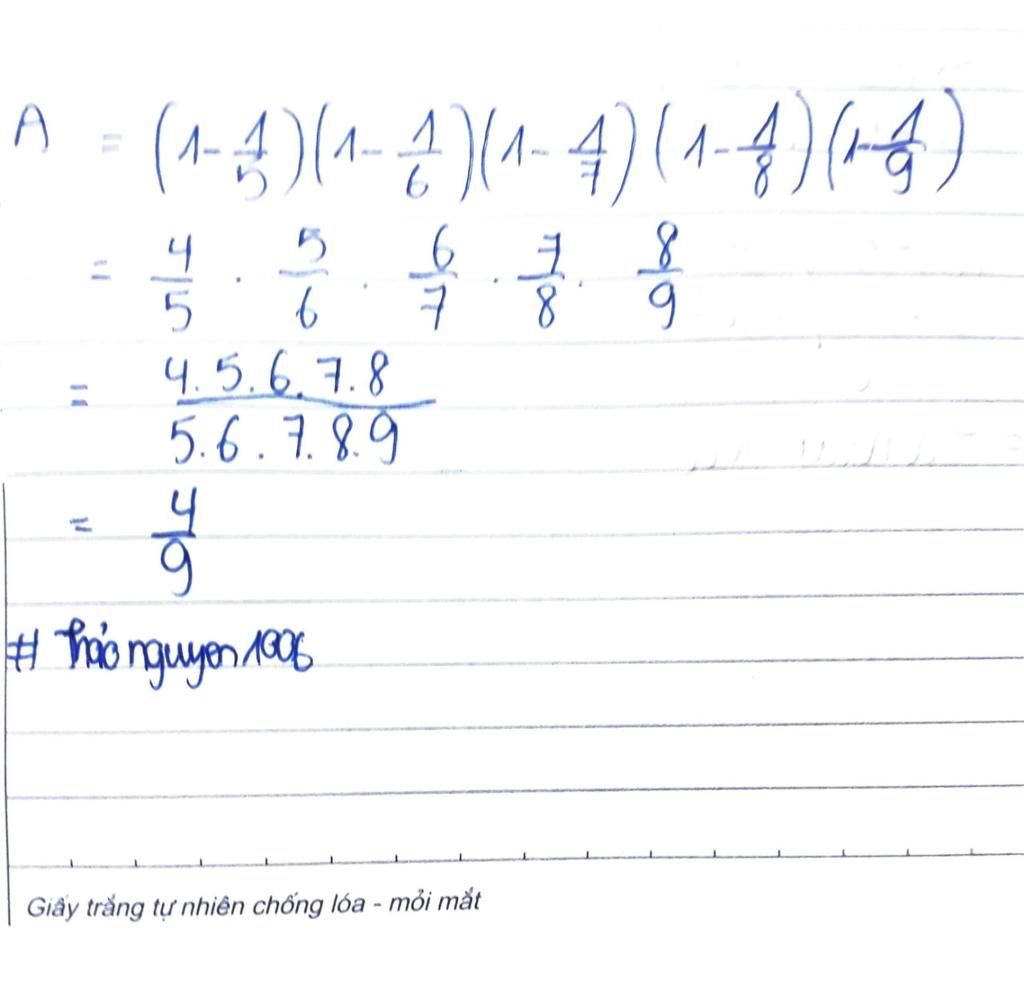 A = (1 - 1/5)(1 - 1/6)(1 - 1/7)(1 - 1/8)(1 - 1/9)
= 4/5 . 5/6 . 6/7 . 7/8 . 8/9
= 4.5.6.7.8 / 5.6.7.8.9
= 4/9
# Thảo nguyen 1006
Giấy trắng tự nhiên chống lóa - mỏi mắt